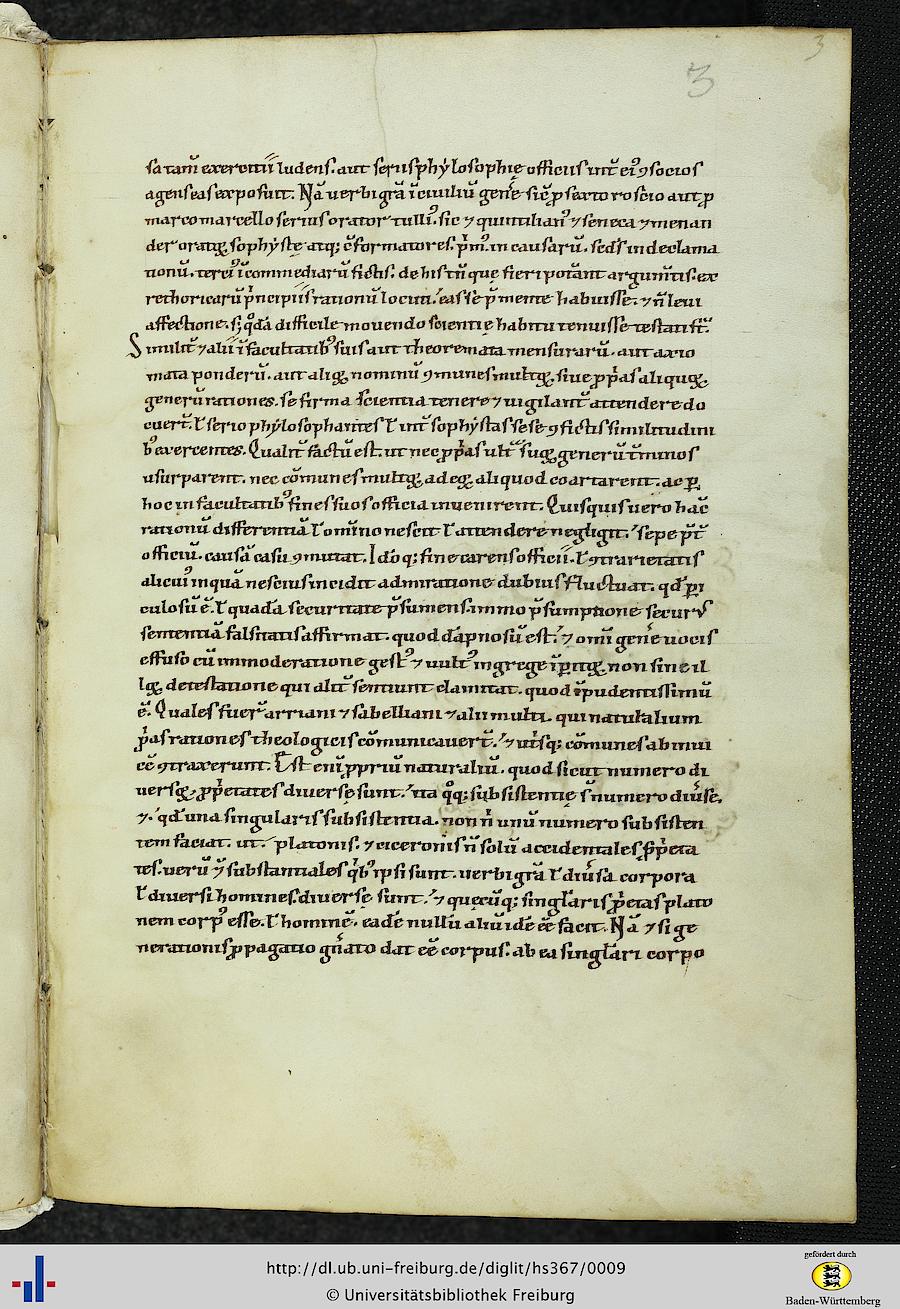 3
3
sa tam̄ exercitii ludens. aut seriis phẏlosophię officiis int̄ ei⁹ ꝯsocios
agens eas exposuit. Nā uerbi grā ī ciuiliū geńe sic̄ ꝓ sexto roscio aut ꝓ
marco marcello serius orator tulli⁹. sic ⁊ quintilian⁹ ⁊ seneca ⁊ menan
der oratoꝝ sophẏstę atq; ꝯformatores. p̄m⁹. in causarū. sed̄s in declama
tionū. terci⁹ ī commediarū fictis. de his tn̄ que fieri potāNt argum̄tis. ex
rethoricarū pⁱncipiis rationū locuti. eas se pⁱ mente habuisse. ⁊ n̄ leui
affectione. s; qⁱdā difficile mouendo scientię habitu tenuisse testati sť.
Similit̄ ⁊ alii ī facultatib⁹ suis aut theoremata mensurarū. aut axio
mata ponderū. aut alioꝝ nominū ꝯmunes multoꝝ, siue ꝓpⁱas aliquoꝝ
generū rationes. se firma scientia tenere ⁊ uigilant̄ attendere do
cuerť. ł serio phẏlosophantes ł int̄ sophẏstas sese ꝯfictis similitudini
b⁹ exercentes. Qualit̄ factū est. ut nec ꝓpⁱas ult̄ suoꝝ generū t̄minos
usurparent. nec cōmunes multoꝝ, ad eoꝝ aliquod coartarent. ac ꝑ
hoc in facultatib⁹ fines suos officia inuenirent. Quisquis uero hāc
rationū differentiā ł omīno nescit ł attendere negligit. sepe p̄t̄
officiū. causā casu ꝯmutat. Idoq; fine carens officii. ł ꝯtrarietatis
alicui⁹ inquā nescius incidit admiratione dubius fluctuat. qđ ꝑi
culosū ē. ł quadā securitate p̄sumens. immo p̄sumptione secur⁹
sententiā falsitatis affirmat. quod dāpnosū est. ⁊ omī geńe uocis
effuso cū immoderatione gest⁹ ⁊ uult⁹ in grege īꝑitoꝝ non sine il
loꝝ detestatione qui alit̄ sentiunt clamitat. quod īpudentissimū
ē. Quales fueŕ arriani ⁊ sabelliani ⁊ alii multi. qui naturalium
ꝓpⁱas rationes theologicis cōmunicauerť. ⁊ utⁱsq; cōmunes ab inui
cē ꝯtraxerunt. Est enī ꝓpriū naturaliū. quod sicut numero di
uersoꝝ ꝓpⁱetates diuersę sunt. ita qͦq; subsistentię sť numero diuⁱsę.
⁊ qđ una singularis subsistentia. non nⁱ unū numero subsisten
tem faciat. ut. platonis. ⁊ ciceronis n̄ solū accidentales ꝓpⁱeta
tes. uerū ⁊ substantiales qⁱb⁹ ipsi sunt. uerbi grā ł diuⁱsa corpora
ł diuersi homines diuersę sunt. ⁊ quecūq; singłaris ꝓpⁱetas plato
nem corp⁹ esse. ł hominē. eadē nullū aliū idē ēē facit. Nā ⁊ si ge
nerationis ꝓpagatio gn̄ato dat ēē corpus. ab ea singłari corpo
http://dl.ub.uni-freiburg.de/diglit/hs367/0009
© Universitätsbibliothek Freiburg
gefördert durch
Baden-Württemberg